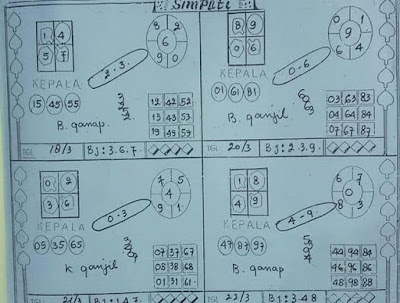 SIMPATI
1 4
5 7
8 2
6
9 0
KEPALA
2-3.
15 45 55
B. ganap.
12 42 52
13 43 53
19 49 59
TGL 18/3 Bj: 3.6.7.
8 9
0 6
9
6 4
KEPALA
0-6
01 61 81
B. ganjil
03 63 83
04 64 84
07 67 87
TGL 20/3 Bj: 2.3.9.
0 2
3 6
7 5
4
9 1
KEPALA
0-3
05 35 65
K ganjil
07 37 67
08 38 68
01 31 61
TGL 21/3 Bj: 1.4.7.
1 8
4 9
6 7
0
8 3
KEPALA
4-9.
47 87 97
B. ganap
44 94 84
46 96 86
48 98 88
TGL 22/3 Bj: 3-4.8